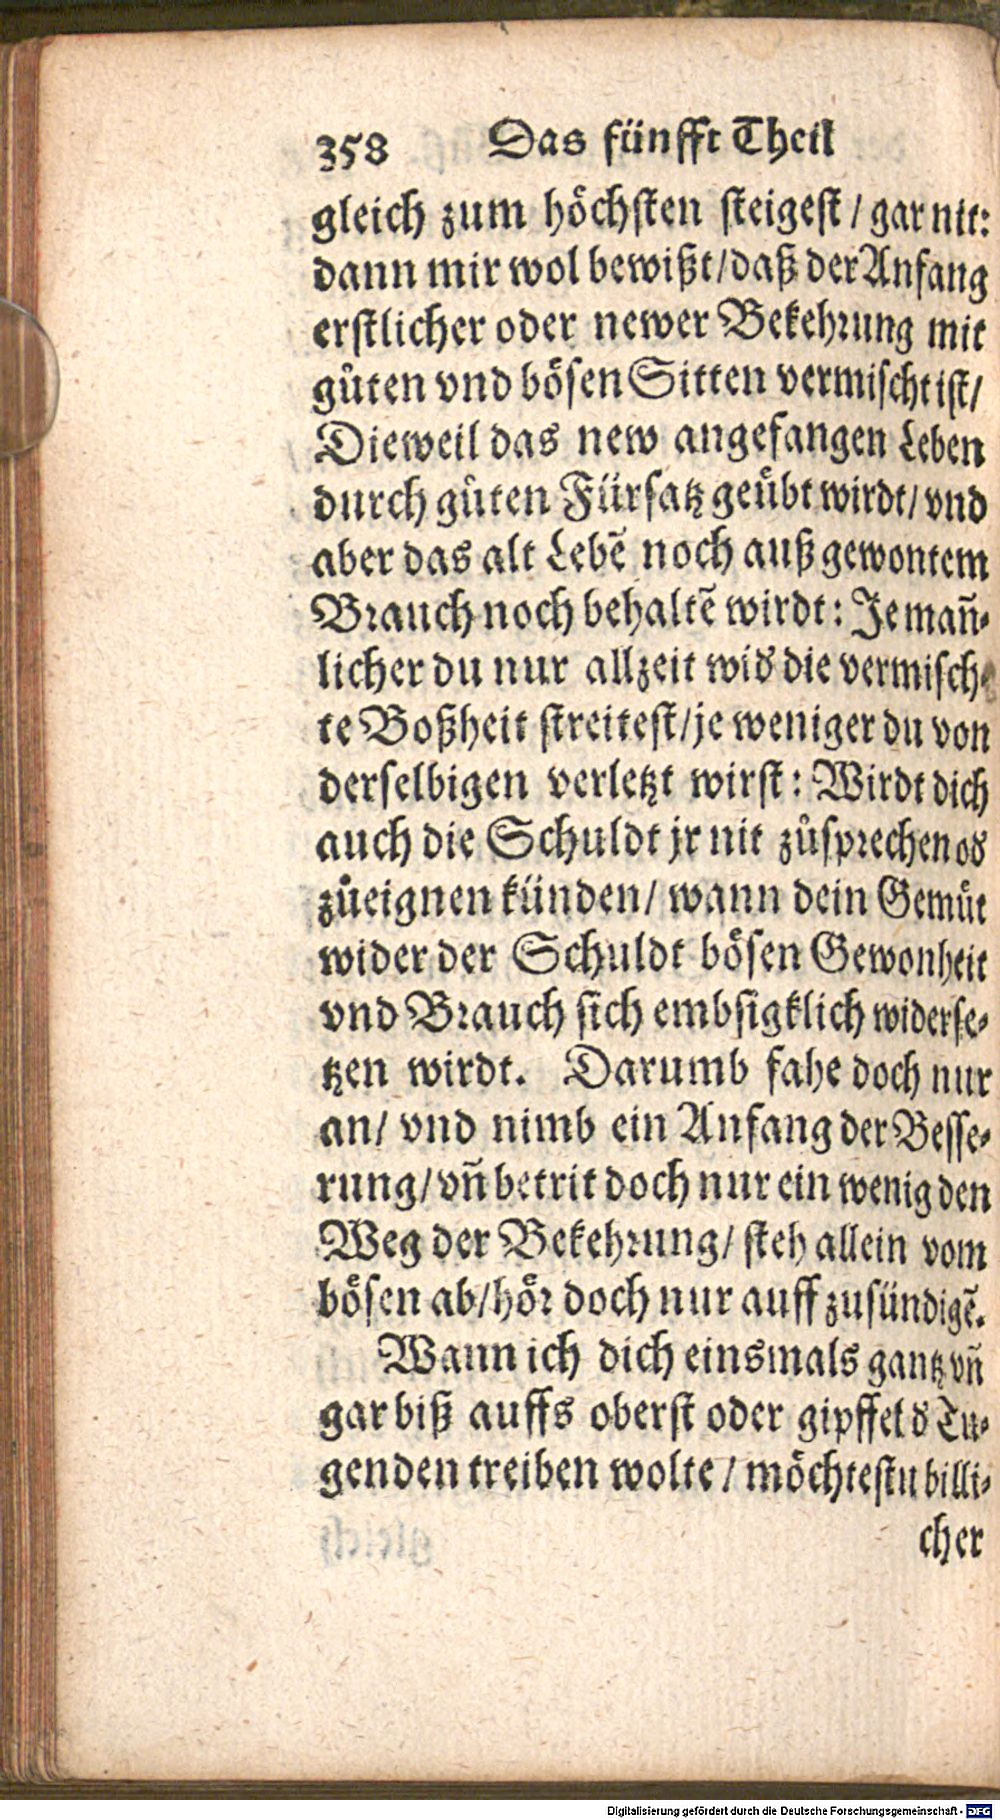 358 Das fünfft Theil
gleich zum höchsten steigest / gar nit:
dann mir wol bewißt / daß der Anfang
erstlicher oder newer Bekehrung mit
gůten vnd bösen Sitten vermischt ist /
Dieweil das new angefangen Leben
durch gůten Fürsatz geübt wirdt / vnd
aber das alt Lebē noch auß gewontem
Brauch noch behaltē wirdt: Je mañ-
licher du nur allzeit wid die vermisch-
te Boßheit streitest / je weniger du von
derselbigen verletzt wirst: Wirdt dich
auch die Schuldt jr nit zůsprechen od
zůeignen künden / wann dein Gemüt
wider der Schuldt bösen Gewonheit
vnd Brauch sich embsigklich widerse-
tzen wirdt. Darumb fahe doch nur
an / vnd nimb ein Anfang der Besse-
rung / vñ betrit doch nur ein wenig den
Weg der Bekehrung / steh allein vom
bösen ab / hör doch nur auff zusündigē.
Wann ich dich einsmals gantz vñ
gar biß auffs oberst oder gipffel d Tu-
genden treiben wolte / möchtestu billi-
cher
Digitalisierung gefördert durch die Deutsche Forschungsgemeinschaft - DFG